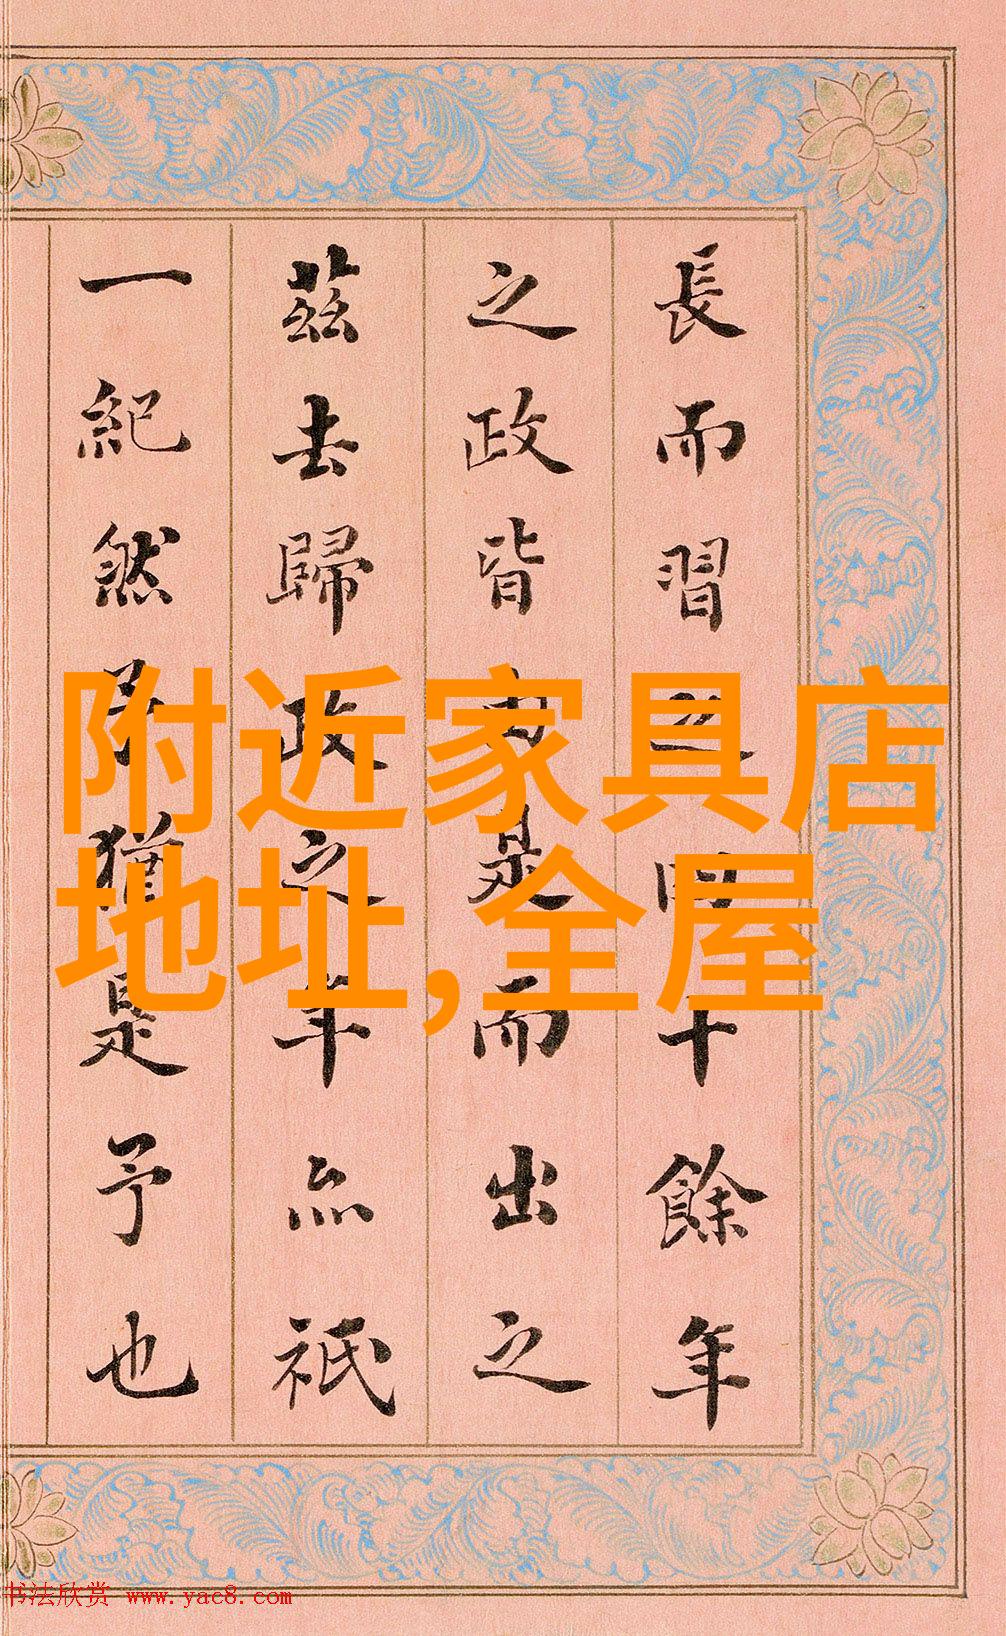 長而習之十餘年
之政皆是而出之
茲去歸政之年亦祇
一紀然予猶是予也
附近家具店
地址,全屋
书法欣赏 www.yac8.com